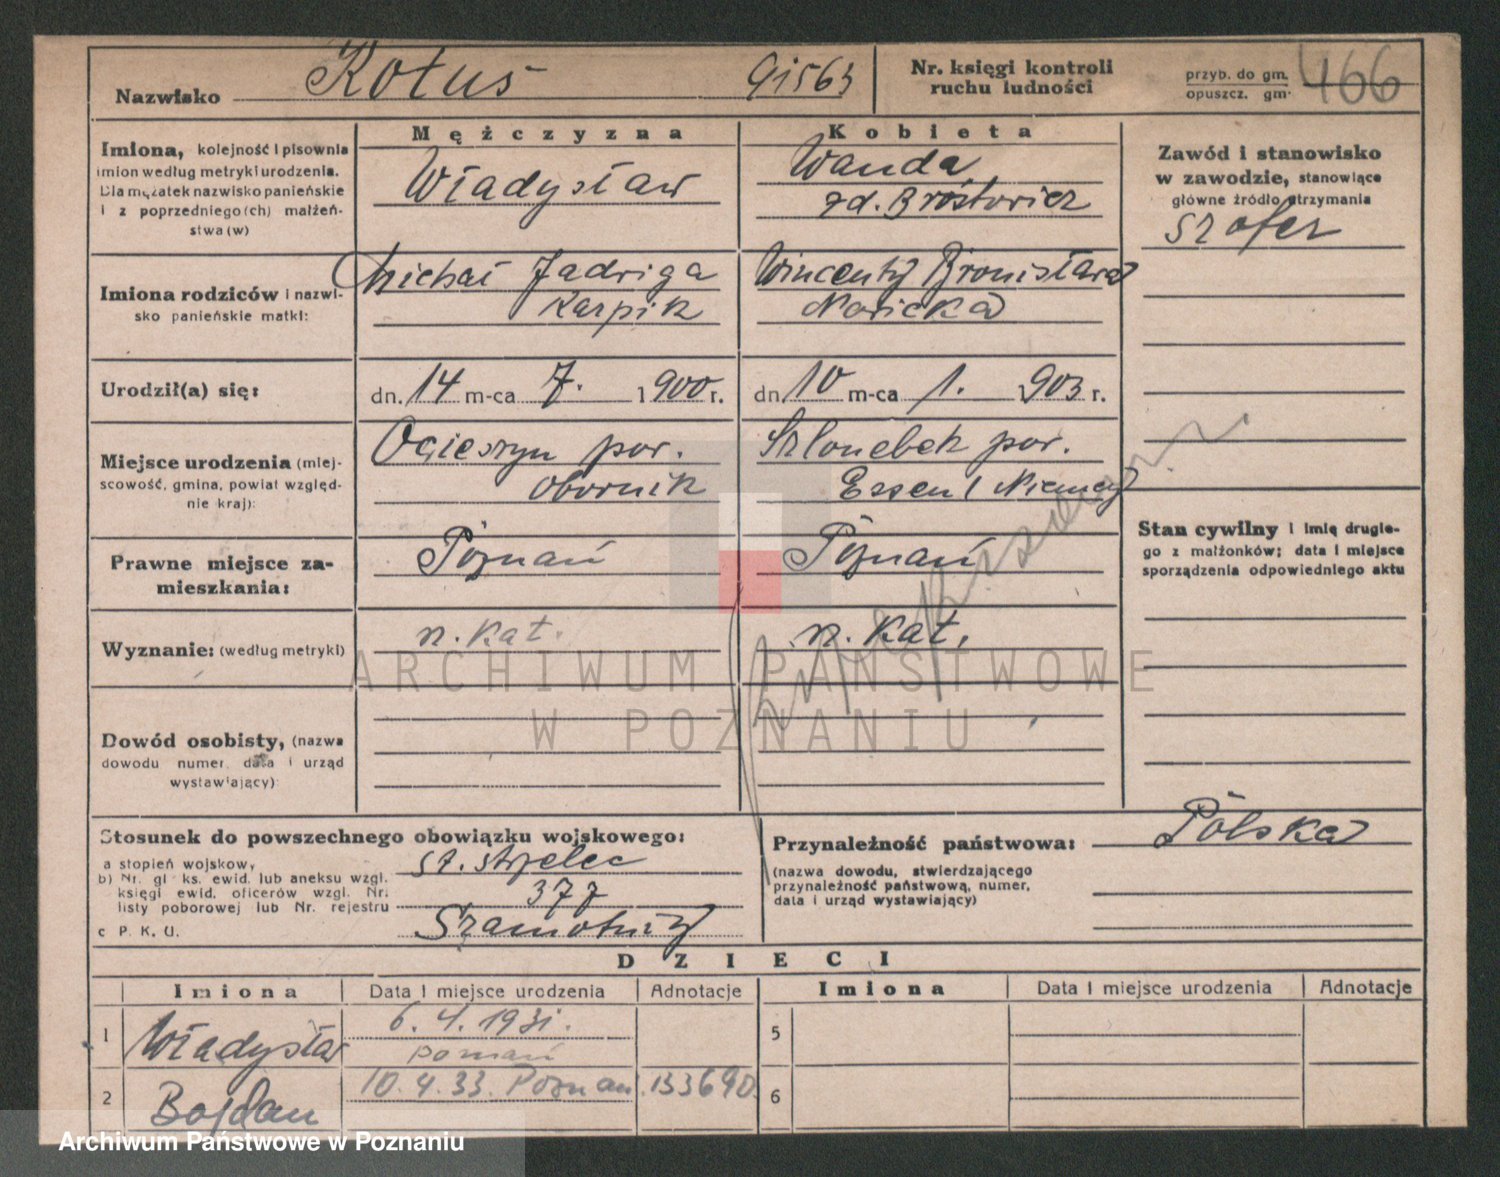 Nazwisko Kotuś 91563
Nr. księgi kontroli
ruchu ludności
przyb. do gm.
opuszcz. gm.
466
Mężczyzna
Kobieta
Imiona, kolejność i pisownia
imion według metryki urodzenia.
Dla mężatek nazwisko panieńskie
i z poprzedniego(ch) małżeń-
stwa(w)
Władysław
Wanda
zd. Brostowicz
Zawód i stanowisko
w zawodzie, stanowiące
główne źródło utrzymania
szofer
Imiona rodziców i nazwi-
sko panieńskie matki:
Michał Jadwiga
Karpik
Wincenty Bronisława
Nowicka
Urodził(a) się:
dn. 14 m-ca 7. 1900 r.
dn. 10 m-ca 1. 1903 r.
Miejsce urodzenia (miej-
scowość, gmina, powiat względ-
nie kraj):
Ocieszyn pow.
Obornik
pow.
Essen / Niemcy
Stan cywilny i imię drugie-
go z małżonków; data i miejsce
sporządzenia odpowiedniego aktu
Prawne miejsce za-
mieszkania:
Poznań
Poznań
Wyznanie: (według metryki)
rz. kat.
rz. kat.
Dowód osobisty, (nazwa
dowodu numer, data i urząd
wystawiający):
Stosunek do powszechnego obowiązku wojskowego:
a stopień wojskow.
b) Nr. gł ks. ewid. lub aneksu wzgl.
księgi ewid. oficerów wzgl. Nr.
listy poborowej lub Nr. rejestru
c P. K. U.
st. strzelec
377
Szamotuły
Przynależność państwowa: Polska
(nazwa dowodu, stwierdzającego
przynależność państwową, numer,
data i urząd wystawiający)
DZIECI
Imiona Data i miejsce urodzenia Adnotacje Imiona Data i miejsce urodzenia Adnotacje
1 Władysław 6.4.1931. Poznań 5
2 Bogdan 10.4.33. Poznań 133690 6
ARCHIWUM PAŃSTWOWE
W POZNANIU
Archiwum Państwowe w Poznaniu